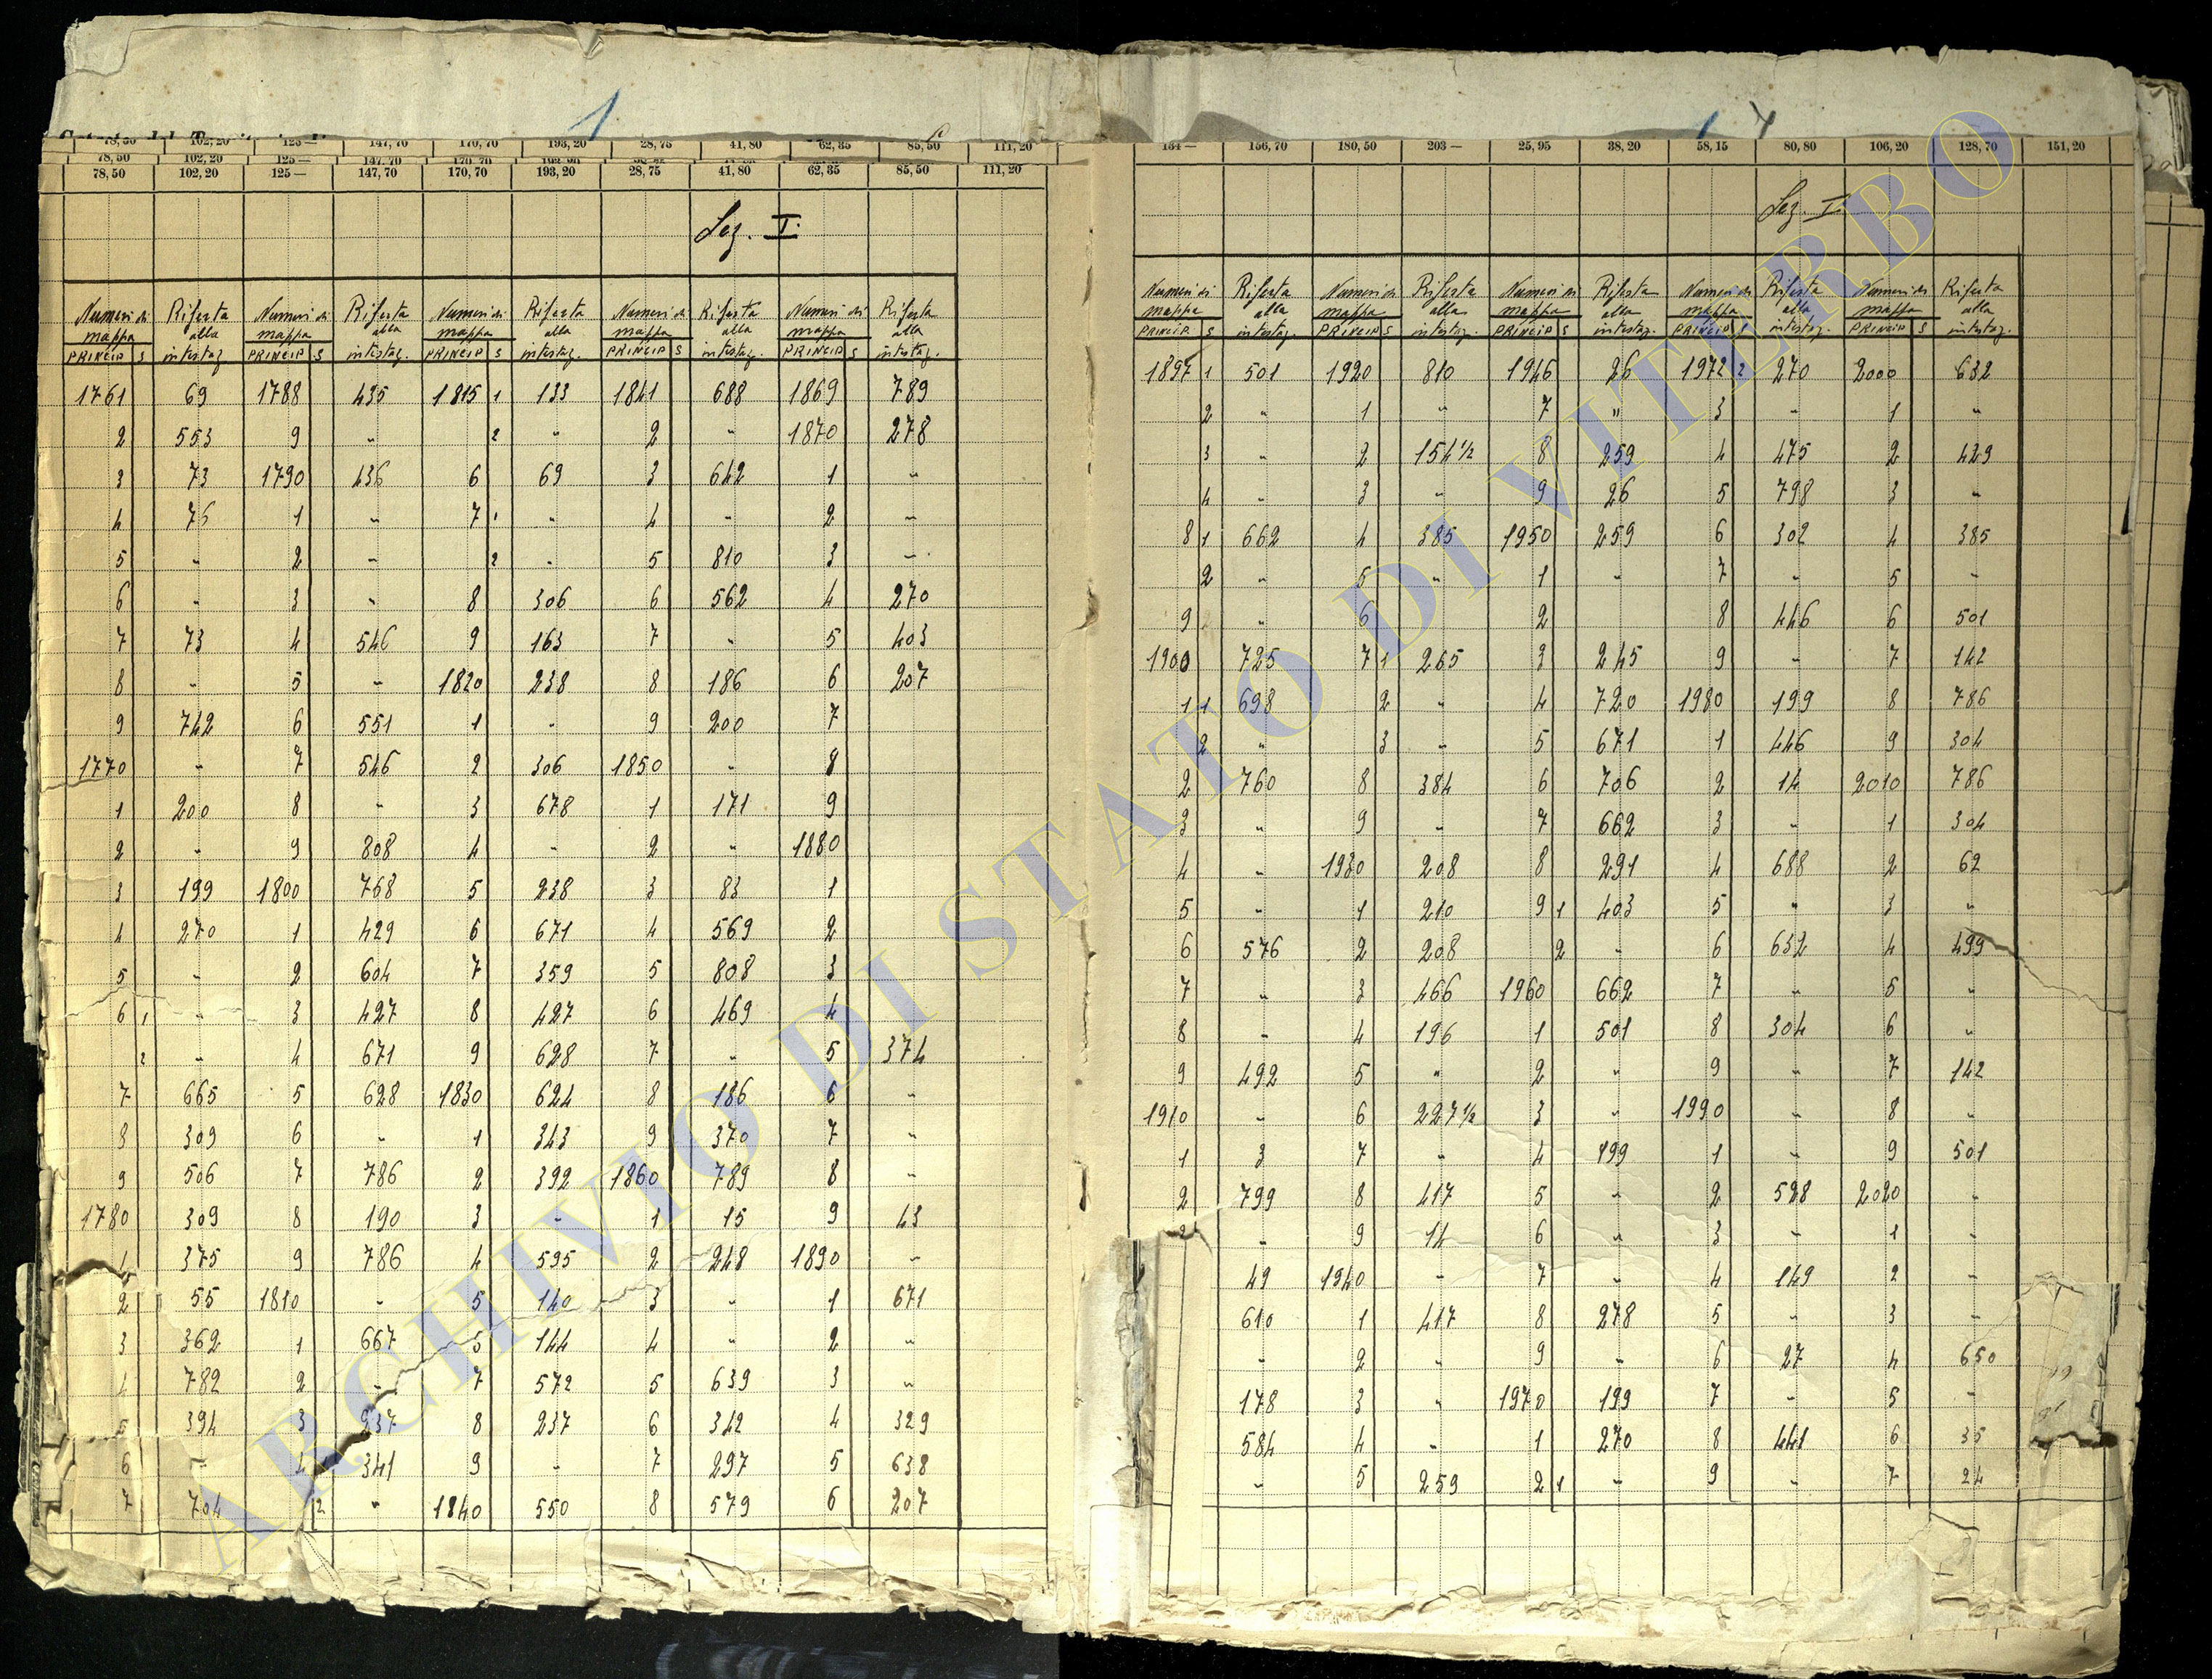 1
78,50 102,20 125— 147,70 170,70 193,20 28,75 41,80 62,35 85,50 111,20
78,50 102,20 125— 147,70 170,70 41,80 62,35 85,50 111,20
78,50 102,20 125— 147,70 170,70 193,20 28,75 41,80 62,35 85,50 111,20
Sez. I.
Numeri di mappa Riferta alla intestaz. Numeri di mappa Riferta alla intestaz. Numeri di mappa Riferta alla intestaz. Numeri di mappa Riferta alla intestaz. Numeri di mappa Riferta alla intestaz.
PRINCIP S PRINCIP S PRINCIP S PRINCIP S PRINCIP S
1761 69 1788 435 1815 1 133 1841 688 1869 789
2 553 9 " 2 " 2 " 1870 278
3 73 1790 436 6 69 3 642 1 "
4 76 1 " 7 1 " 4 " 2 "
5 " 2 " 2 " 5 810 3 "
6 " 3 " 8 306 6 562 4 270
7 73 4 546 9 163 7 " 5 403
8 " 5 " 1820 238 8 186 6 207
9 742 6 551 1 " 9 200 7
1770 " 7 546 2 306 1850 " 8
1 200 8 " 3 678 1 171 9
2 " 9 808 4 " 2 " 1880
3 199 1800 768 5 238 3 83 1
4 270 1 429 6 671 4 569 2
5 " 2 604 7 359 5 808 3
6 1 " 3 427 8 427 6 469 4
2 " 4 671 9 628 7 " 5 374
7 665 5 628 1830 624 8 186 6 "
8 309 6 " 1 343 9 370 7 "
9 506 7 786 2 392 1860 789 8 "
1780 309 8 190 3 " 1 15 9 43
1 375 9 786 4 595 2 248 1890 "
2 55 1810 " 5 140 3 " 1 671
3 362 1 667 5 144 4 " 2 "
4 782 2 " 7 572 5 639 3 "
5 394 3 237 8 237 6 342 4 329
6 " 4 341 9 " 7 297 5 638
7 704 2 " 1840 550 8 579 6 207
134— 156,70 180,50 203— 25,95 38,20 58,15 80,80 106,20 128,70 151,20
Sez. I.
Numeri di mappa Riferta alla intestaz. Numeri di mappa Riferta alla intestaz. Numeri di mappa Riferta alla intestaz. Numeri di mappa Riferta alla intestaz. Numeri di mappa Riferta alla intestaz.
PRINCIP S PRINCIP S PRINCIP S PRINCIP S PRINCIP S
1897 1 501 1920 810 1946 26 1972 2 270 2000 632
2 " 1 " 7 " 3 " 1 "
3 " 2 154 1/2 8 259 4 475 2 429
4 " 3 " 9 26 5 798 3 "
8 1 662 4 385 1950 259 6 302 4 385
2 " 5 " 1 " 7 " 5 "
9 " 6 " 2 " 8 446 6 501
1900 725 7 1 265 3 245 9 " 7 142
1 1 698 2 " 4 720 1980 199 8 786
2 " 3 " 5 671 1 446 9 304
2 760 8 384 6 706 2 14 2010 786
3 " 9 " 7 662 3 " 1 304
4 " 1930 208 8 291 4 688 2 62
5 " 1 210 9 1 403 5 " 3 "
6 576 2 208 2 " 6 632 4 499
7 " 3 466 1960 662 7 " 5 "
8 " 4 196 1 501 8 304 6 "
9 492 5 " 2 " 9 " 7 142
1910 " 6 227 1/2 3 " 1990 " 8 "
1 3 7 " 4 199 1 " 9 501
2 799 8 417 5 " 2 528 2020 "
3 " 9 14 6 " 3 " 1 "
49 1940 " 7 " 4 149 2 "
610 1 417 8 278 5 " 3 "
" 2 " 9 " 6 27 4 650
178 3 " 1970 199 7 " 5 "
584 4 " 1 270 8 441 6 35
" 5 259 2 1 " 9 " 7 24
ARCHIVIO DI STATO DI VITERBO